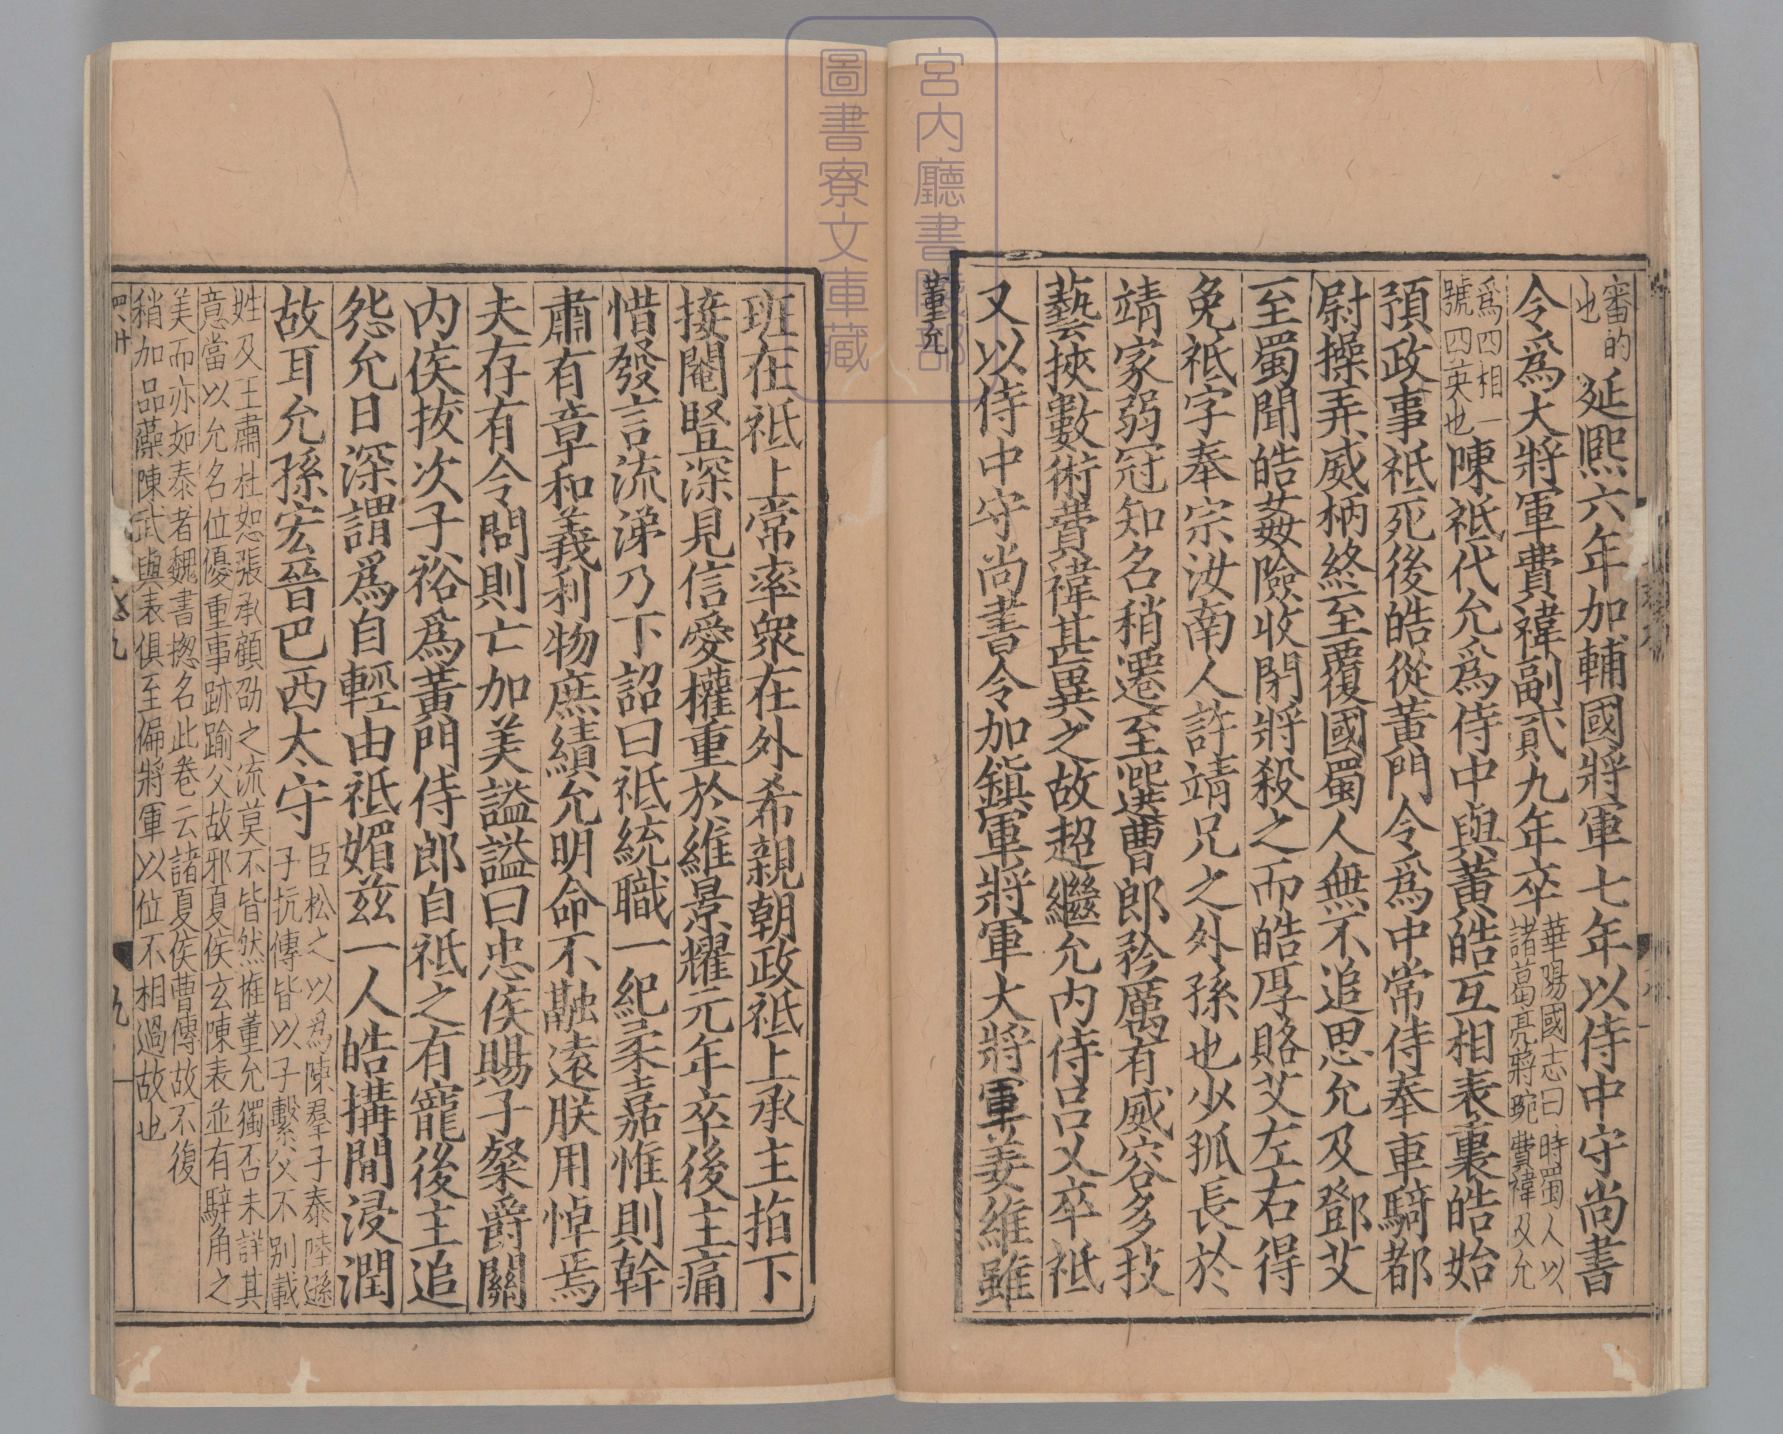 審的
也 延熙六年加輔國將軍七年以侍中守尚書
令爲大將軍費禕副貳九年卒 華陽國志曰時蜀人以 諸葛亮蔣琬費禕及允
爲四相一 號四英也 陳祗代允爲侍中與黃皓互相表裏皓始
預政事祗死後皓從黃門令爲中常侍奉車騎都
尉操弄威柄終至覆國蜀人無不追思允及鄧艾
至蜀聞皓姦險收閉將殺之而皓厚賂艾左右得
免祗字奉宗汝南人許靖兄之外孫也少孤長於
靖家弱冠知名稍遷至選曹郎矜厲有威容多技
藝挾數術費禕甚異之故超繼允内侍吕乂卒祗
又以侍中守尚書令加鎮軍將軍大將軍姜維雖
董允
班在祗上常率衆在外希親朝政祗上承主㫖下
接閹豎深見信愛權重於維景耀元年卒後主痛
惜發言流涕乃下詔曰祗統職一紀柔嘉惟則幹
肅有章和義利物庶績允明命不融遠朕用悼焉
夫存有令問則亡加美謚謚曰忠侯賜子粲爵關
内侯拔次子裕爲黃門侍郎自祗之有寵後主追
怨允日深謂爲自輕由祗媚兹一人皓搆閒浸潤
故耳允孫宏晉巴西太守 臣松之以爲陳羣子泰陸遜 子抗傳皆以子繫父不别載
姓及王肅杜恕張承顧劭之流莫不皆然惟董允獨否未詳其
意當以允名位優重事跡踰父故邪夏侯玄陳表並有騂角之
美而亦如泰者魏書揔名此卷云諸夏侯曹傳故不復
稍加品藻陳武與表俱至偏將軍以位不相過故也
宮内廳書陵部
圖書寮文庫藏